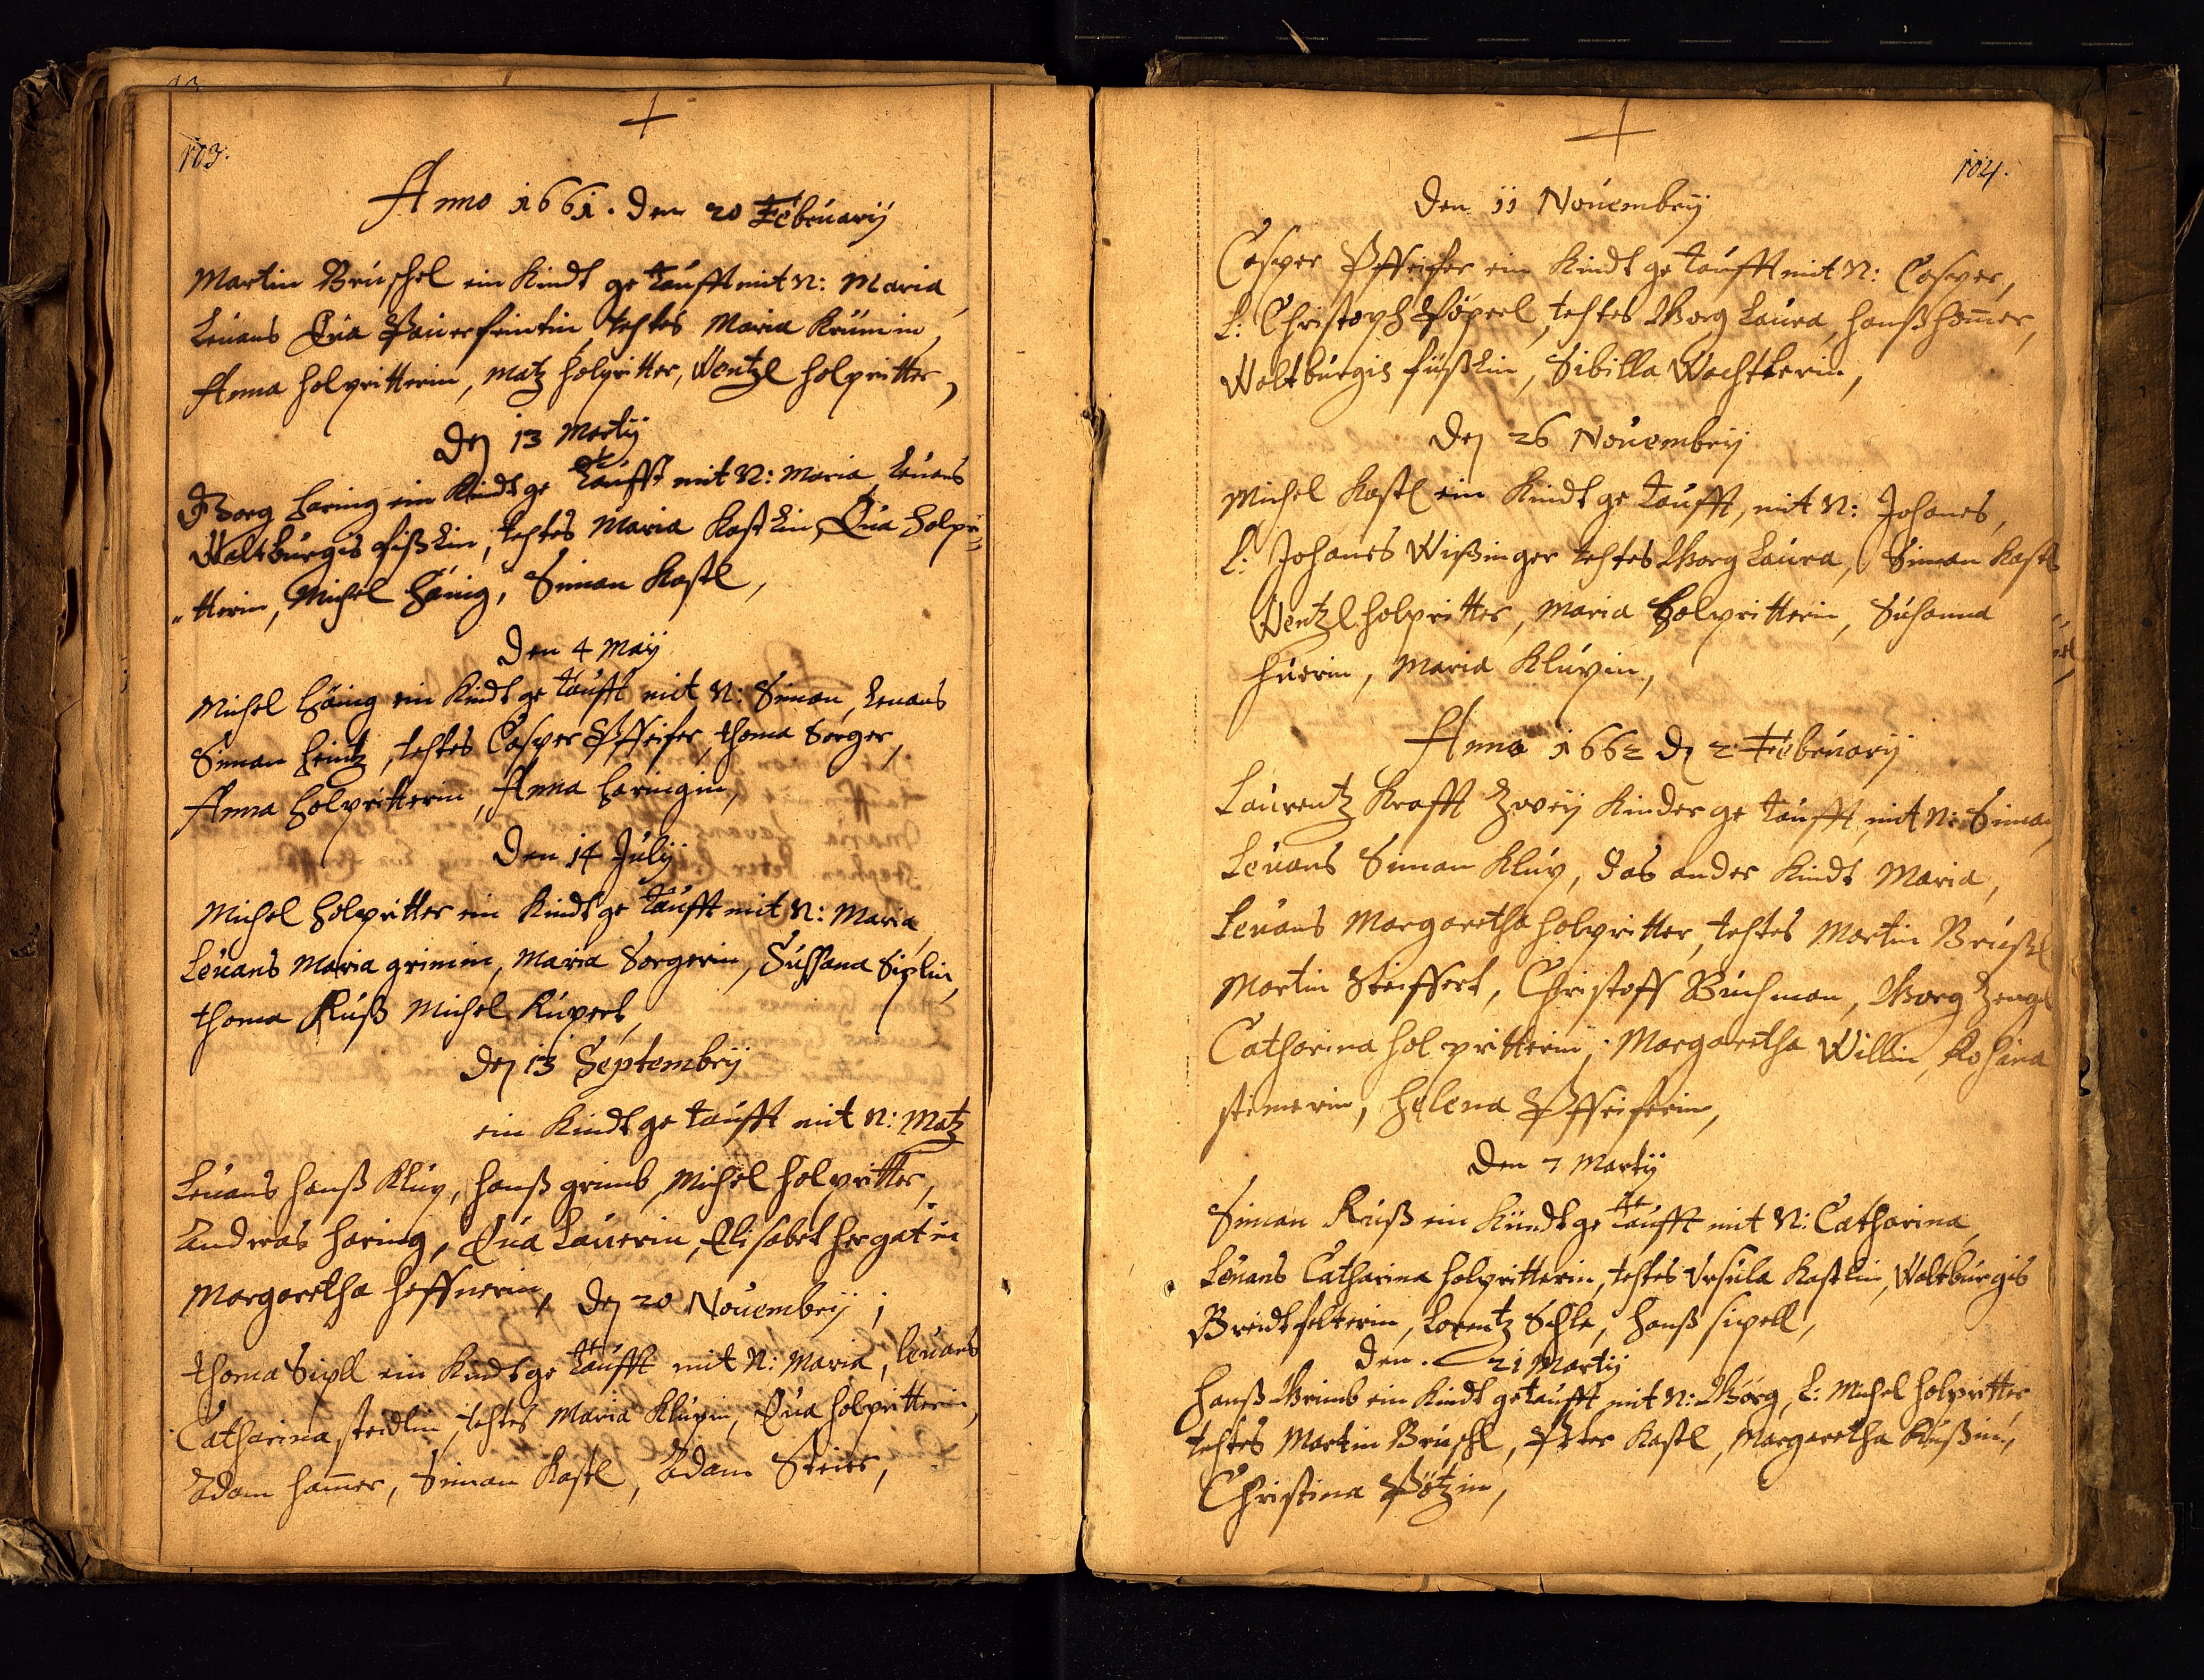 103.
Anno 1661. den 20 Februarij
Martin Bruschel ein Kindt getaufft mit N: Maria,
Leuans Eua testes Maria Krümin,
Anna holpritterin, Matz holpritter, Wentzl holpritter,
Den 13 Martij
Georg Haring ein Kindt getaufft mit N: Maria, Leuans
Waltburgis fißlin, testes Maria Kastlin, Eua Holpri=
"tterin, Michel Hänig, Siman Kastl,
Den 4 Maij
Michel Häing ein Kindt getaufft mit N: Siman, Leuans
Siman Heintz, testes Casper Pffeifer, thoma Sorger,
Anna Holpritterin, Anna Haringin,
Den 14 Julij
Michel Holpritter ein Kindt getaufft mit N: Maria
Leuans Maria grimin, Maria Sorgerin, Sussana Siplin,
thoma Ruß Michel Rupert,
Den 13 Septembrij
ein Kindt getaufft mit N: Matz
Leuans Hanß Klup, Hanß grimb, Michel holpritter,
Andreas Haring, Eua Lauerin, Elisabet hergatin
Margaretha heffnerin, Den 20 Nouembrij ;
thoma Sipll ein Kindt getaufft mit N: Maria, leuans
Catharina steidlin, testes Maria Klupin, Eua holpritterin,
Adam ham̄er, Siman Kastl, Adam Steier,
104.
Den 11 Nouembrij
Casper Pffeifer ein Kindt getaufft mit N: Casper,
L: Christoph Pöperl, testes Georg Laura, Hanß Hom̄er,
Waltburgis füßlin, Sibilla Wachtlerin,
Den 26 Nouembrij
Michel Kastl ein Kindt getaufft, mit N: Johanes,
L: Johanes Wißinger testes Georg Laura, Siman Kastl
Wentzl holpritter, Maria Holpritterin, Susanna
huerin, Maria Klupin,
Anno 1662 Den 2 Februarij
Laurentz Krafft Zweij Kinder getaufft, mit N: Siman,
Leuans Siman Klup, das ander Kindt Maria,
Leuans Margaretha holpritter, testes Martin Brustl
Martin Steiffert, Christoff Buchman, Georg Zengl
Catharina holpritterin, Margaretha Willin, Rosina
stimerin, Helena Pffeiferin,
Den 7 Martij
Siman Ruß ein Kündt getaufft mit N: Catharina,
Leuans Catharina Holpritterin, testes Vrsula Kastlin, Waltburgis
Breidtfelterin, Lorentz Schle, Hanß sipell,
Den. 21 Martij
Hanß Grimb ein Kindt getaufft mit N: Georg, L: Michel Holpritter
testes Martin Bruschl, Peter Kastl, Margaretha Rußin,
Christina Pötzin,